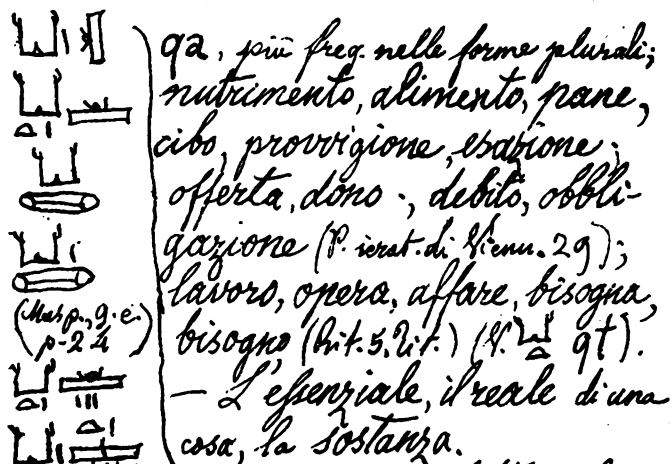 qa, più freq. nelle forme plurali;
nutrimento, alimento, pane,
cibo, provvigione, esazione;
offerta, dono ·, debito, obbli-
gazione (P. ierat. di Vienn. 29);
lavoro, opera, affare, bisogna,
(Masp., g. e.
p. 24)
bisogno (Rit. 5, Tit.) (V. qt).
— L'essenziale, il reale di una
cosa, la sostanza.